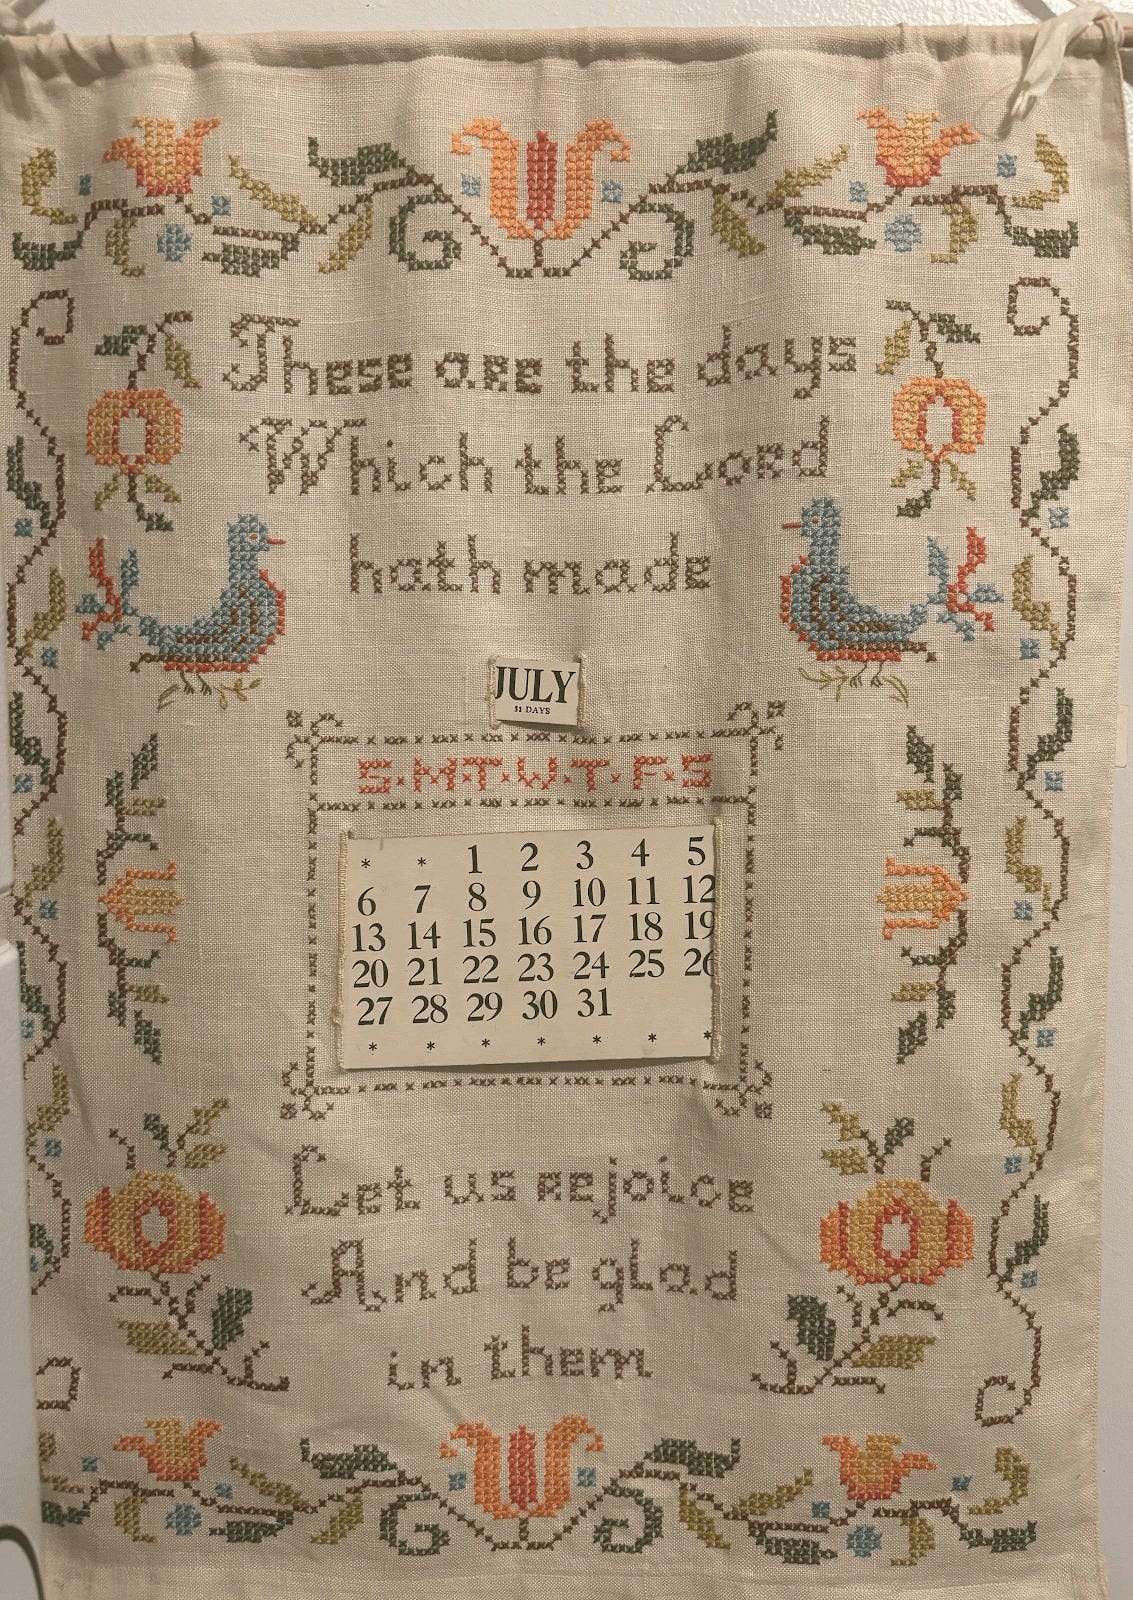 These are the days
Which the Lord
hath made
JULY
31 DAYS
S·M·T·W·T·F·S
* * 1 2 3 4 5
6 7 8 9 10 11 12
13 14 15 16 17 18 19
20 21 22 23 24 25 26
27 28 29 30 31
* * * * * * *
Let us rejoice
And be glad
in them